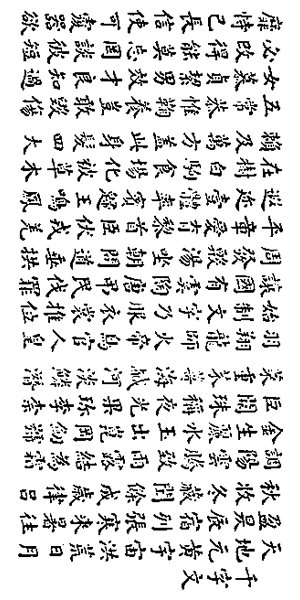 千字文
天地元黃宇宙洪荒日月
盈昃辰宿列張寒來暑往
秋收冬藏閏餘成歲律呂
調陽雲騰致雨露結為霜
金生麗水玉出崑岡劍號
巨闕珠稱夜光果珍李柰
菜重芥薑海鹹河淡鱗潛
羽翔龍師火帝鳥官人皇
始制文字乃服衣裳推位
讓國有虞陶唐弔民伐罪
周發殷湯坐朝問道垂拱
平章愛育黎首臣伏戎羌
遐邇壹體率賓歸王鳴鳳
在樹白駒食場化被草木
賴及萬方蓋此身髮四大
五常恭惟鞠養豈敢毀傷
女慕貞絜男效才良知過
必改得能莫忘罔談彼短
靡恃己長信使可覆器欲